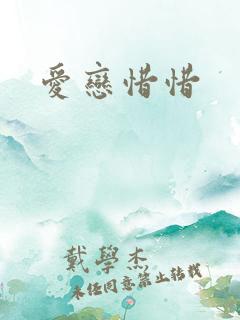 愛戀惜惜
戴學杰
未经同意禁止转载